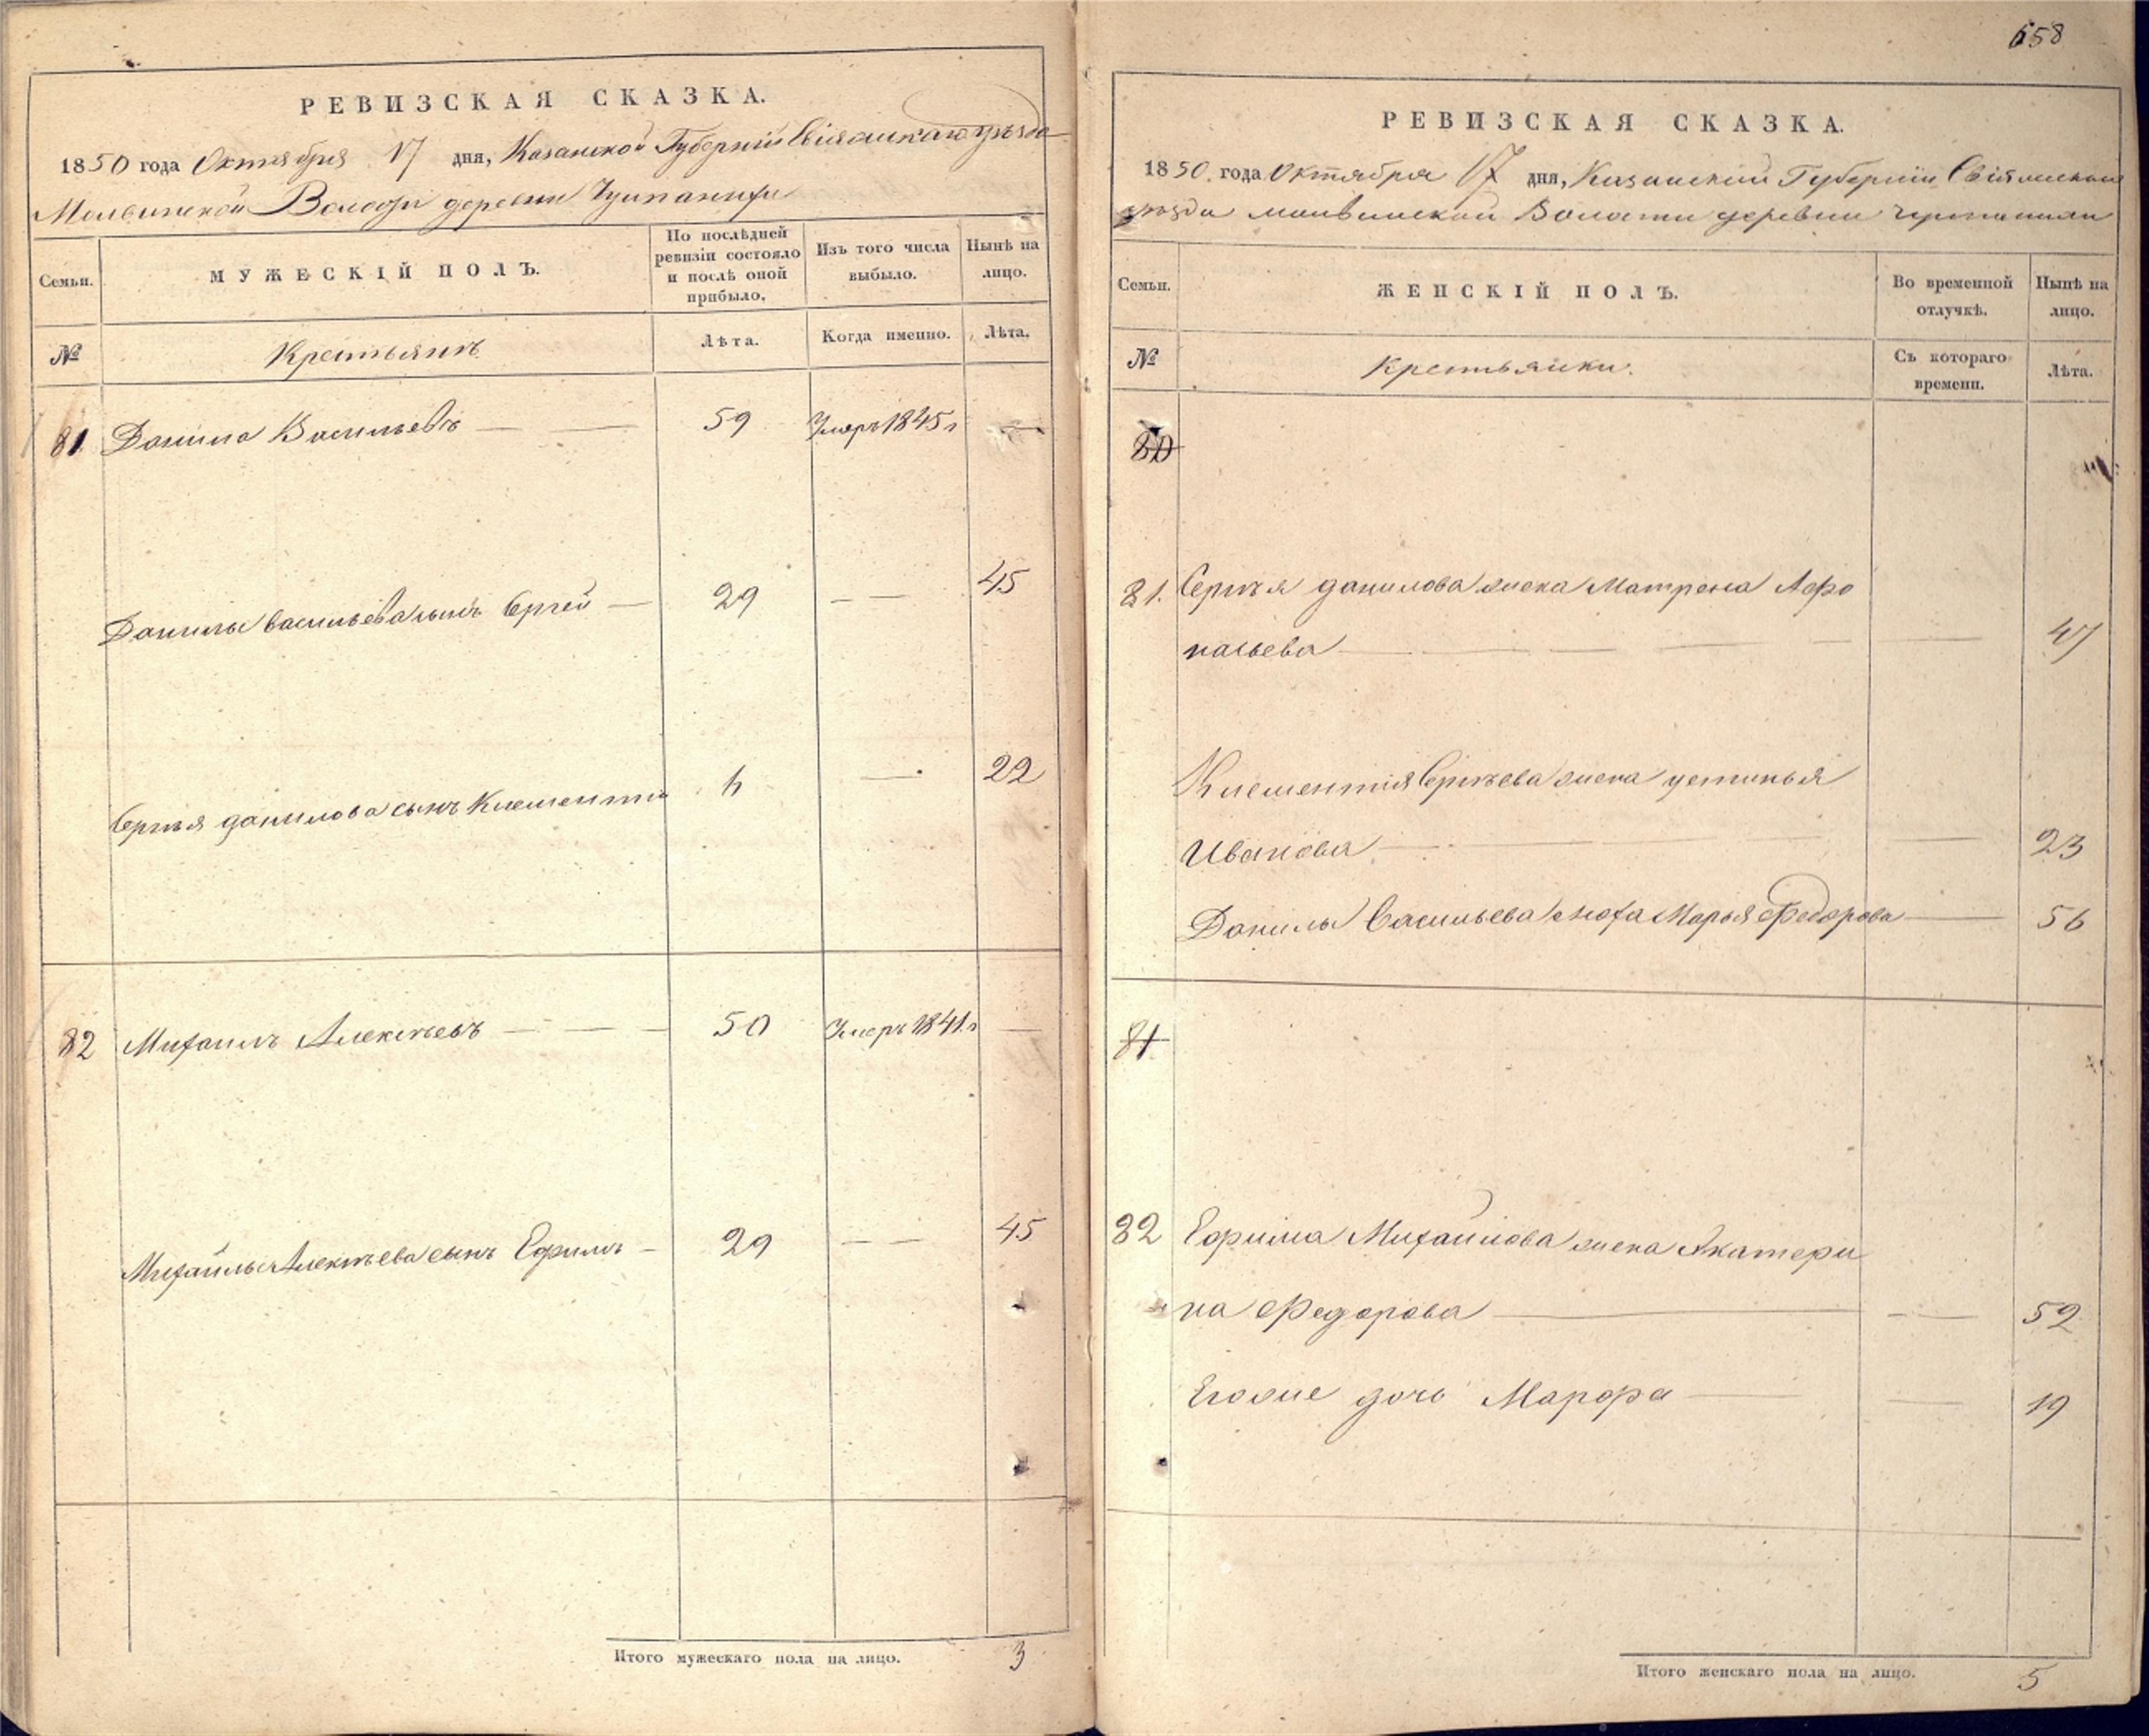 РЕВИЗСКАЯ СКАЗКА.
1850 года Октября 17 дня, Казанской Губерніи Свіяжскаго уѣзда
Волости деревни
Семьи.
МУЖЕСКІЙ ПОЛЪ.
По послѣдней ревизіи состояло и послѣ оной прибыло.
Изъ того числа выбыло.
Нынѣ на лицо.
№
Крестьянъ
Лѣта.
Когда именно.
Лѣта.
81 Данила Васильевъ 59 Умеръ 1845 г
Данилы Васильева сынъ Сергей 29 45
Сергѣя данилова сынъ Клементи 4 22
82 Михаилъ Алексѣевъ 50 Умеръ 1841 г
Михайлы Алексѣева сынъ Ефимъ 29 45
Итого мужескаго пола на лицо. 3
658
РЕВИЗСКАЯ СКАЗКА.
1850 года Октября 17 дня, Казанской Губерніи
уѣзда Волости деревни
Семьи.
ЖЕНСКІЙ ПОЛЪ.
Во временной отлучкѣ.
Нынѣ на лицо.
№
Крестьянки.
Съ котораго времени.
Лѣта.
80
81. Сергѣя данилова жена Матрена Афо
насьева 47
Клементія Сергѣева жена устинья
Иванова 23
Данилы Васильева жена Марья Федорова 56
81
82 Ефима Михайлова жена Акатери
на Федорова 52
Егоже дочь Марфа 19
Итого женскаго пола на лицо. 5